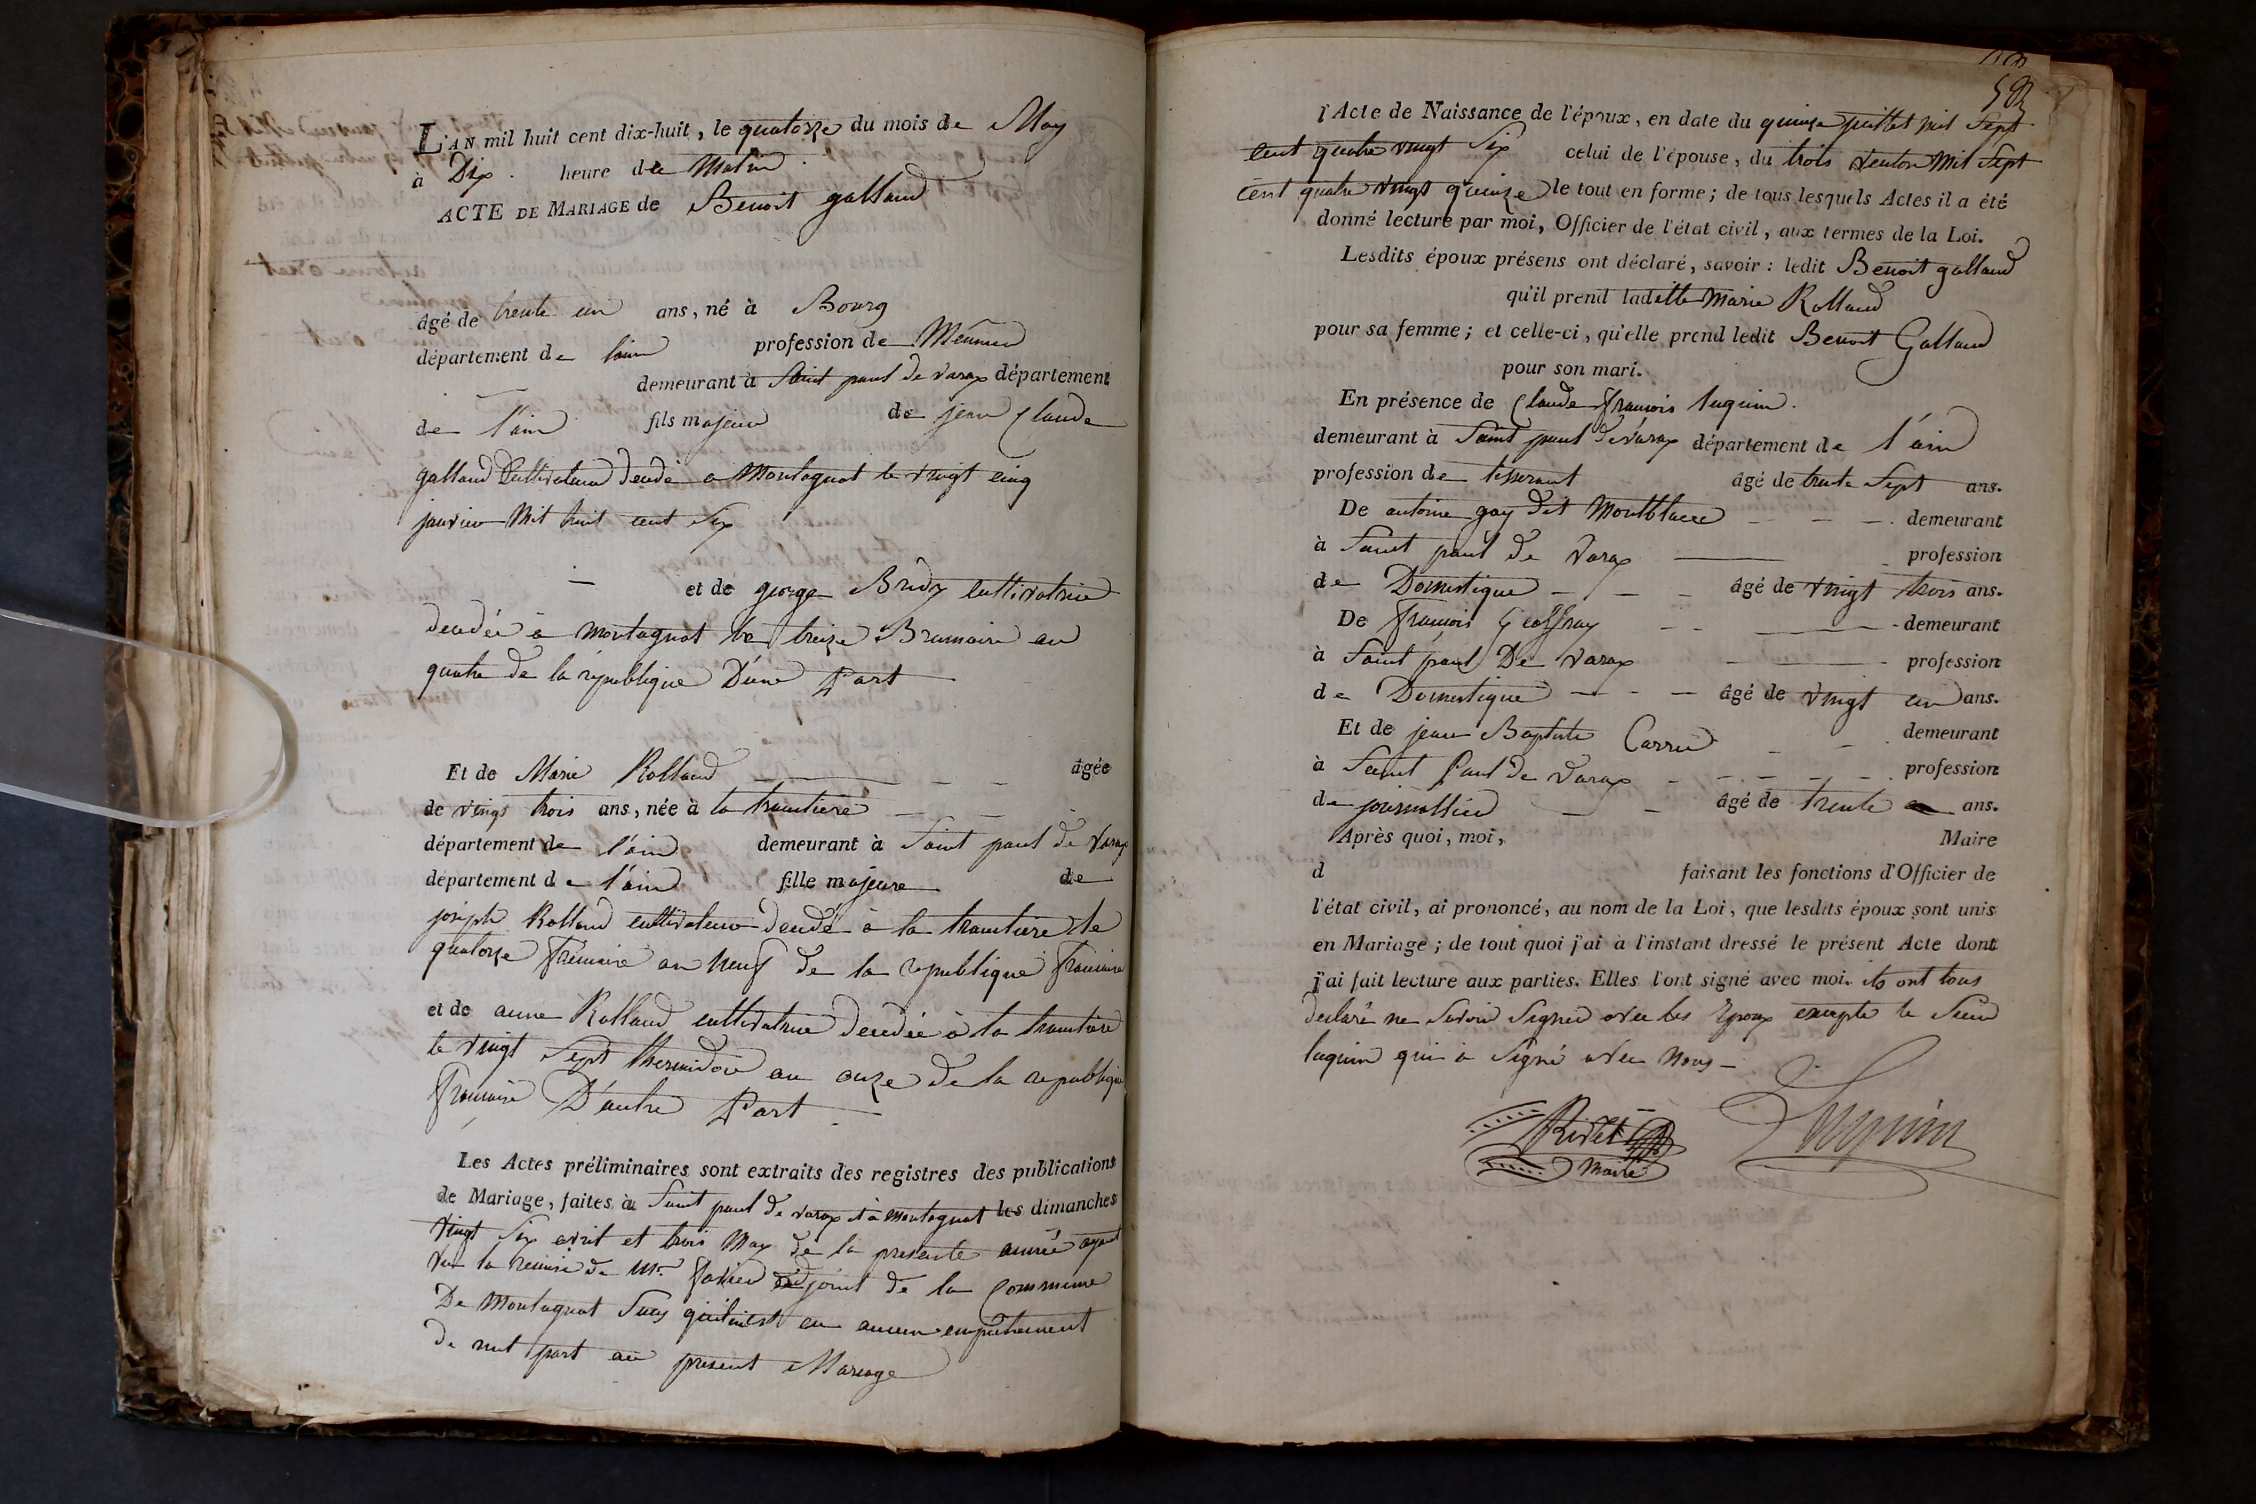 L'AN mil huit cent dix-huit, le quatorze du mois de May
à Dix heure du Matin
ACTE DE MARIAGE de Benoit galland
âgé de trente un ans, né à Bourg
département de l'ain profession de Meunier
demeurant à Saint paul de varax département
de l'ain fils majeur de jean Claude
galland Cultivateur décédé a Montagnat le vingt cinq
janvier Mil huit cent Six
et de george Bridy cultivatrice
decedée à montagnat le treize Brumaire an
quatre de la république D'une Part
Et de Marie Rolland âgée
de vingt trois ans, née à la tranclière
département de l'ain demeurant à Saint paul de Varax
département de l'ain fille majeure de
joseph Rolland cultivateur décédé à la tranclière le
quatorze frimaire an neuf de la republique francaise
et de anne Rolland cultivatrice decedée à la tranclière
le vingt Sept thermidor an onze de la republique
francaise D'autre Part
Les Actes préliminaires sont extraits des registres des publications
de Mariage, faites à Saint paul de varax et à montagnat les dimanches
vingt Six avril et trois May de la presente année ayant
vu la remise de Mr. adjoint de la Commune
De Montagnat Sans qu'il n'est eu aucun empechement
de nut part au present Mariage
l'Acte de Naissance de l'époux, en date du quinze juillet mil Sept
cent quatre vingt Six celui de l'épouse, du trois Mil Sept
cent quatre vingt quinze le tout en forme; de tous lesquels Actes il a été
donné lecture par moi, Officier de l'état civil, aux termes de la Loi.
Lesdits époux présens ont déclaré, savoir: ledit Benoit galland
qu'il prend ladite Marie Rolland
pour sa femme; et celle-ci, qu'elle prend ledit Benoit Galland
pour son mari.
En présence de Claude François luquin.
demeurant à Saint paul de varax département de l'ain
profession de tisserant âgé de trente Sept ans.
De antoine gay dit Montblanc demeurant
à Saint paul de Varax profession
de Domestique âgé de vingt trois ans.
De françois Geoffray demeurant
à Saint paul De varax profession
de Domestique âgé de vingt un ans.
Et de jean Baptiste Carru demeurant
à Saint Paul de varax profession
de journallier âgé de trente ans.
Après quoi, moi, Maire
d faisant les fonctions d'Officier de
l'état civil, ai prononcé, au nom de la Loi, que lesdits époux sont unis
en Mariage; de tout quoi j'ai à l'instant dressé le présent Acte dont
j'ai fait lecture aux parties. Elles l'ont signé avec moi. ils ont tous
declaré ne Savoir Signer avec les Epoux excepte le Sieur
luquin qui à Signé avec Nous
Luquin
Maire